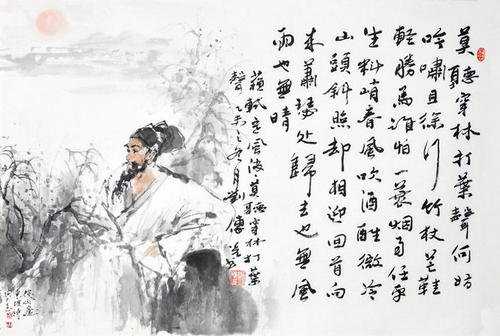 莫聽穿林打葉聲何妨
吟嘯且徐行竹杖芒鞋
輕勝馬誰怕一蓑烟雨任平
生料峭春風吹酒醒微冷
山頭斜照却相迎回首向
来蕭瑟處歸去也無風
雨也無晴
蘇軾定風波莫聽穿林打葉
聲乙未冬月劉